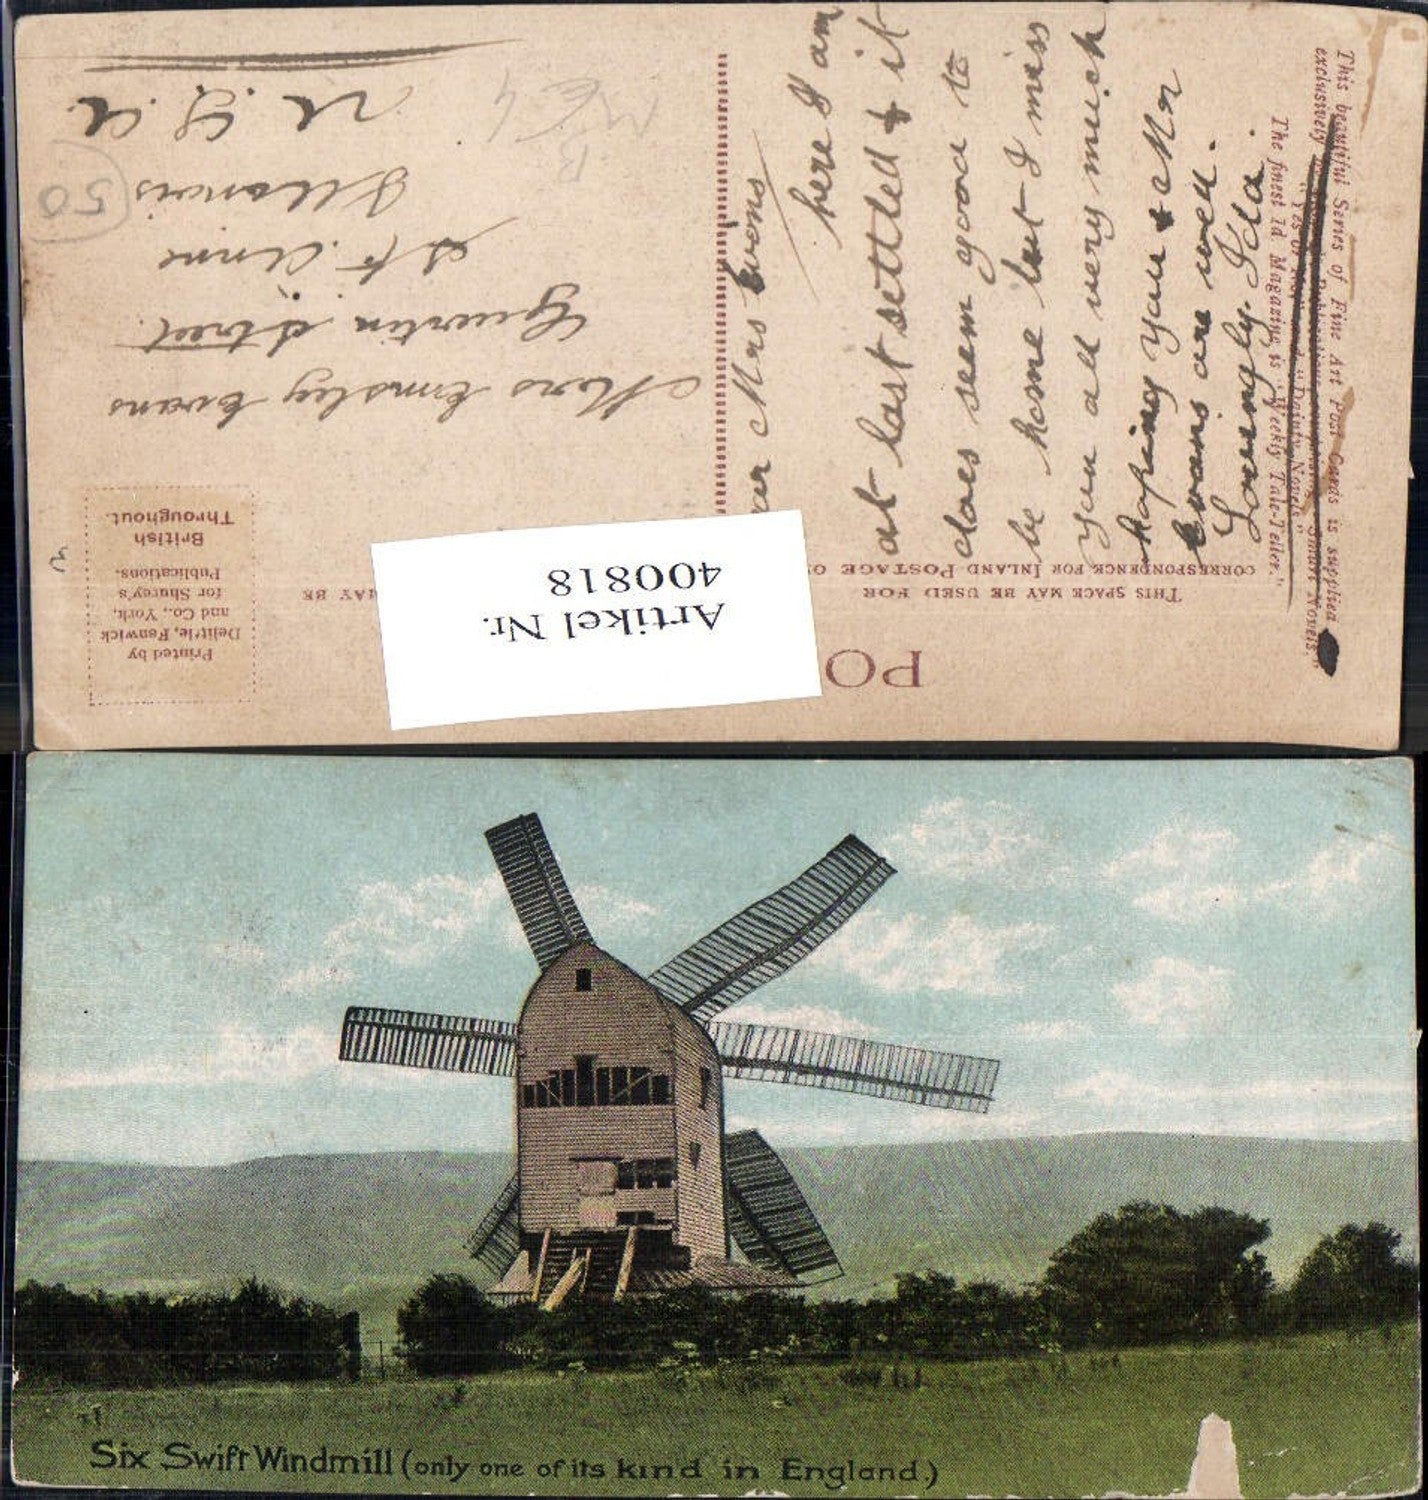 POS
THIS SPACE MAY BE USED FOR
CORRESPONDENCE FOR INLAND POSTAGE O
MAY BE
Artikel Nr.
400818
Printed by
Delittle, Fenwick
and Co., York,
for Shurey's
Publications.
British
Throughout.
Mrs Emsley Evans
Guertin Street.
St. Anne
Illanois
U. S. A.
50
This beautiful Series of Fine Art Post Cards is supplied
exclusively
The finest 1d. Magazine is "Weekly Tale-Teller."
ear Mrs Evans
here I am
at last settled & it
does seem good to
be home but I miss
you all very much
hoping you & Mr
Evans are well.
Lovingly. Ida.
Six Swift Windmill (only one of its kind in England.)